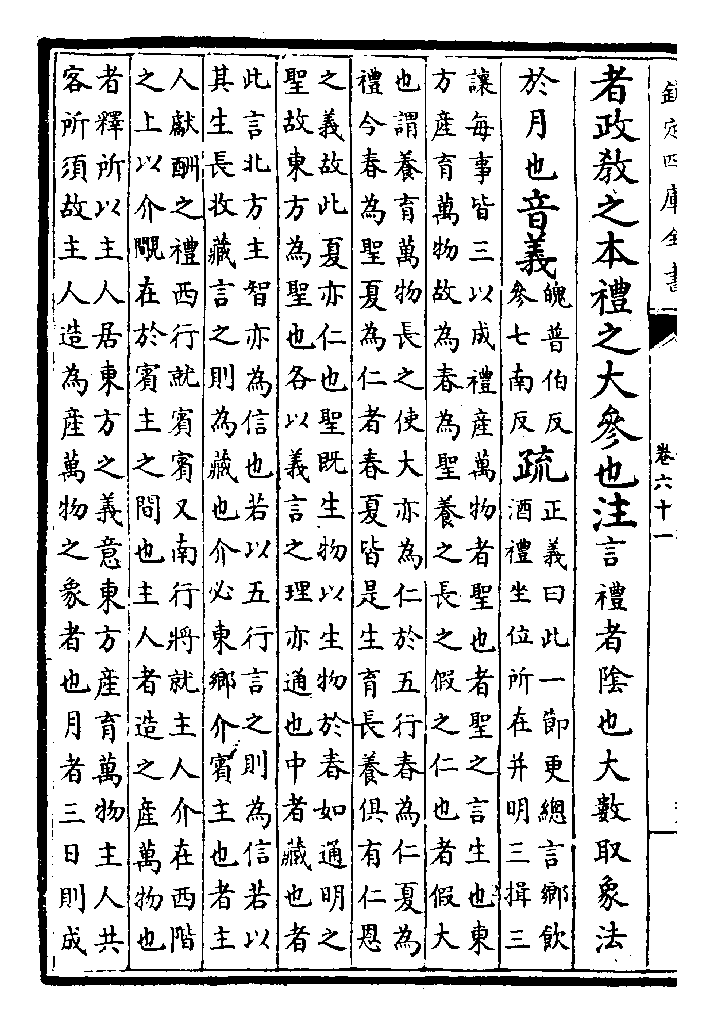 欽定四庫全書
卷六十一
者政教之本禮之大參也注言禮者陰也大數取象法
於月也音義魄普伯反
參七南反
疏正義曰此一節更總言鄉飲
酒禮坐位所在并明三揖三
讓每事皆三以成禮產萬物者聖也者聖之言生也東
方產育萬物故為春為聖養之長之假之仁也者假大
也謂養育萬物長之使大亦為仁於五行春為仁夏為
禮今春為聖夏為仁者春夏皆是生育長養俱有仁恩
之義故此夏亦仁也聖既生物以生物於春如通明之
聖故東方為聖也各以義言之理亦通也中者藏也者
此言北方主智亦為信也若以五行言之則為信若以
其生長收藏言之則為藏也介必東鄉介賓主也者主
人獻酬之禮西行就賓賓又南行將就主人介在西階
之上以介覸在於賓主之間也主人者造之產萬物也
者釋所以主人居東方之義意東方產育萬物主人共
客所須故主人造為產萬物之象者也月者三日則成